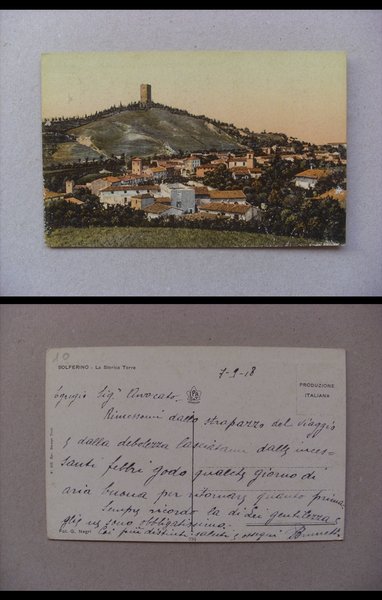 10
SOLFERINO - La Storica Torre
7-9-18
PRODUZIONE
ITALIANA
Egregio Sigr Avvocato.
Rimessomi dallo strapazzo del viaggio
e dalla debolezza lasciatami dalle inces-
santi febbri godo qualche giorno di
aria buona per ritornare quanto prima.
Sempre ricordo la di Lei gentilezza e
gliene sono obbligatissimo.
Coi più distinti saluti e ossequi
Fot. G. Negri